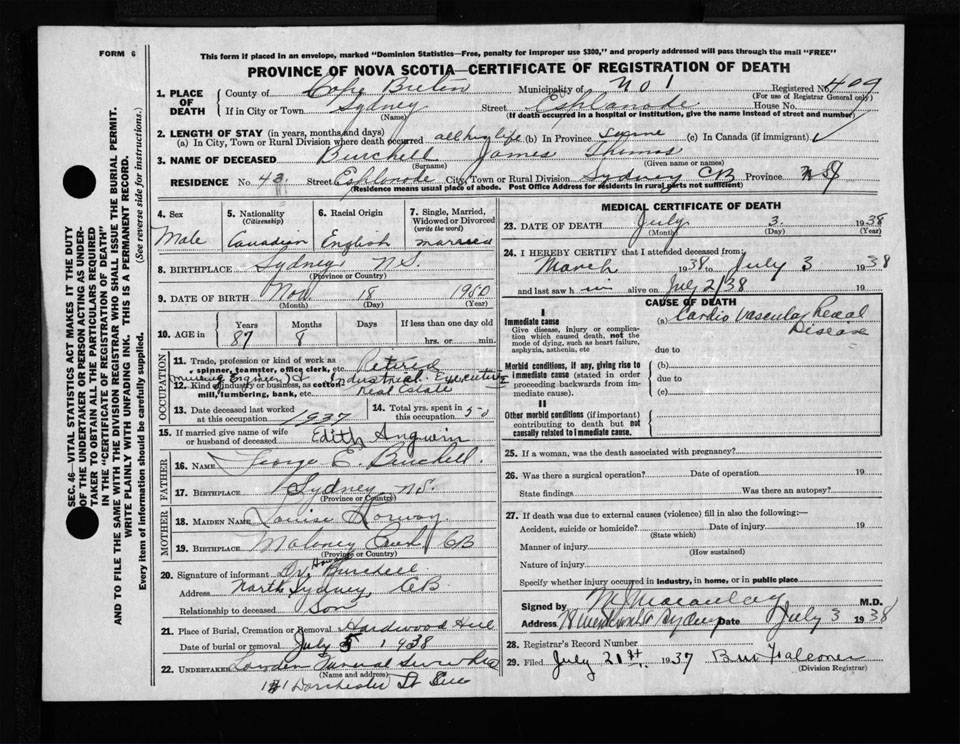 FORM 6
This form if placed in an envelope, marked "Dominion Statistics—Free, penalty for improper use $300," and properly addressed will pass through the mail "FREE"
PROVINCE OF NOVA SCOTIA—CERTIFICATE OF REGISTRATION OF DEATH
1. PLACE OF DEATH County of Cape Breton Municipality of No 1 Registered No. 409
(For use of Registrar General only)
If in City or Town Sydney Street Esplanade House No.
(Name) (If death occurred in a hospital or institution, give the name instead of street and number)
2. LENGTH OF STAY (in years, months and days)
(a) In City, Town or Rural Division where death occurred all his life (b) In Province same (c) In Canada (if immigrant)
3. NAME OF DECEASED Burchell James Thomas
(Surname) (Given name or names)
RESIDENCE No. 43. Street Esplanade City, Town or Rural Division Sydney CB Province NS
(Residence means usual place of abode. Post Office Address for residents in rural parts not sufficient)
SEC. 46—VITAL STATISTICS ACT MAKES IT THE DUTY
OF THE UNDERTAKER OR PERSON ACTING AS UNDER-
TAKER TO OBTAIN ALL THE PARTICULARS REQUIRED
IN THE "CERTIFICATE OF REGISTRATION OF DEATH"
AND TO FILE THE SAME WITH THE DIVISION REGISTRAR WHO SHALL ISSUE THE BURIAL PERMIT.
WRITE PLAINLY WITH UNFADING INK. THIS IS A PERMANENT RECORD.
Every item of information should be carefully supplied. (See reverse side for instructions.)
4. Sex 5. Nationality (Citizenship) 6. Racial Origin 7. Single, Married, Widowed or Divorced (write the word)
Male Canadian English married
8. BIRTHPLACE Sydney N.S.
(Province or Country)
9. DATE OF BIRTH Nov. 18 1950
(Month) (Day) (Year)
10. AGE in Years Months Days If less than one day old
87 8 hrs. or min.
OCCUPATION
11. Trade, profession or kind of work as spinner, teamster, office clerk, etc. Retired
(mining Engineer) & Industrial Executive
12. Kind of industry or business, as cotton mill, lumbering, bank, etc. Real Estate
13. Date deceased last worked at this occupation 1937 14. Total yrs. spent in this occupation 50
15. If married give name of wife or husband of deceased Edith Angwin
FATHER
16. NAME George E. Burchell.
17. BIRTHPLACE Sydney N.S.
(Province or Country)
MOTHER
18. MAIDEN NAME Louise
19. BIRTHPLACE CB
(Province or Country)
20. Signature of informant Dr. Burchell
Address North Sydney, CB.
Relationship to deceased Son
21. Place of Burial, Cremation or Removal Hardwood Hill
Date of burial or removal July 5 1938
22. UNDERTAKER Lowden Funeral Service
(Name and address)
Dorchester St
MEDICAL CERTIFICATE OF DEATH
23. DATE OF DEATH July 3. 1938
(Month) (Day) (Year)
24. I HEREBY CERTIFY that I attended deceased from:
March 1938 to July 3 1938
and last saw him alive on July 2/38 19
CAUSE OF DEATH
I
Immediate cause (a) Cardio Vascular Renal Disease
Give disease, injury or complica-
tion which caused death, not the
mode of dying, such as heart failure,
asphyxia, asthenia, etc
due to
Morbid conditions, if any, giving rise to (b)
immediate cause (stated in order due to
proceeding backwards from im-
mediate cause). (c)
II
Other morbid conditions (if important)
contributing to death but not
causally related to immediate cause.
25. If a woman, was the death associated with pregnancy?
26. Was there a surgical operation? Date of operation 19
State findings Was there an autopsy?
27. If death was due to external causes (violence) fill in also the following:—
Accident, suicide or homicide? Date of injury 19
(State which)
Manner of injury
(How sustained)
Nature of injury
Specify whether injury occurred in industry, in home, or in public place
Signed by M. Macaulay M.D.
Address Sydney Date July 3 1938
28. Registrar's Record Number
29. Filed July 21st. 1937 Falconer
(Division Registrar)